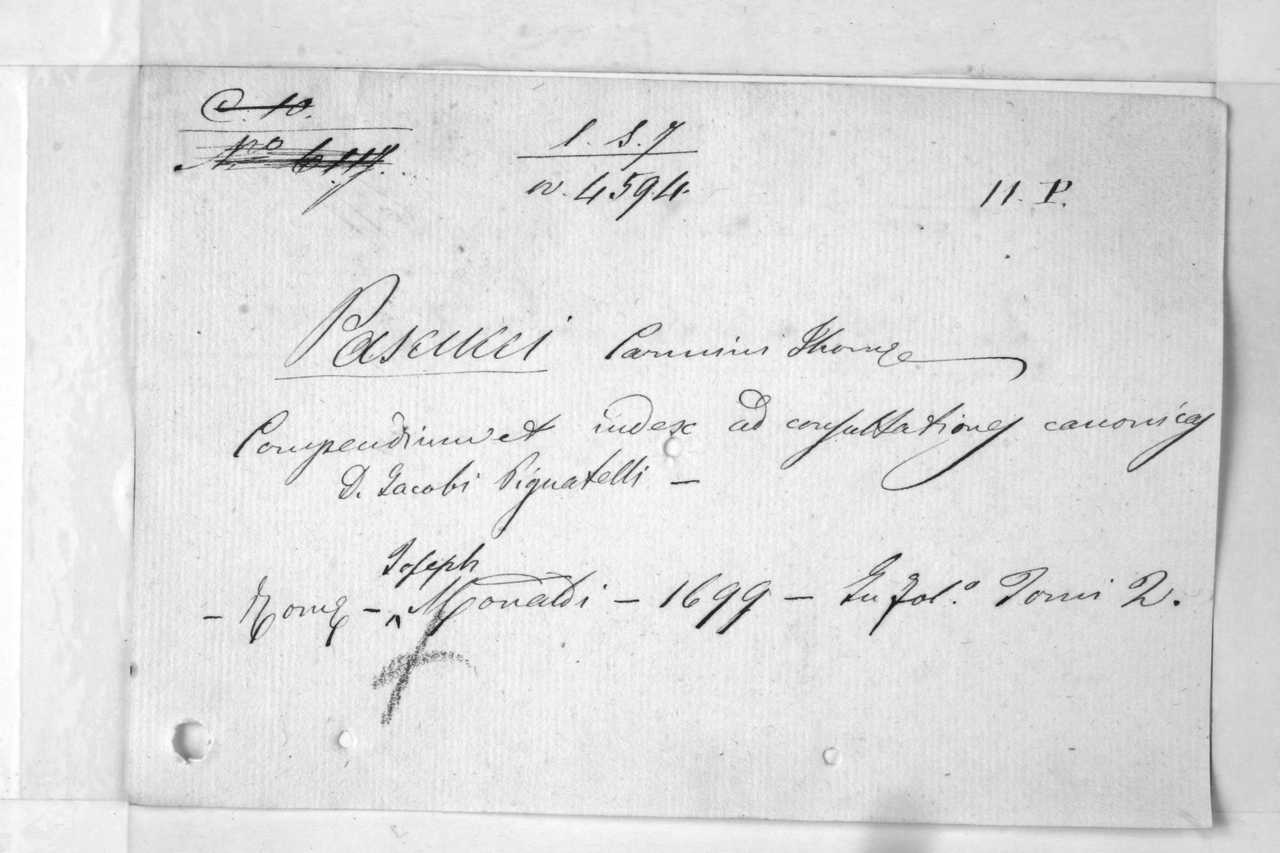 C. 10.
Nro 6117.
l. S. 7
n. 4594.
11. P.
Pascucci Carmini Thomæ
Compendium et index ad consultationes canonicas
D. Jacobi Pignatelli —
Joseph
— Romæ — ^ Monaldi — 1699 — In fol.o Tomi 2.